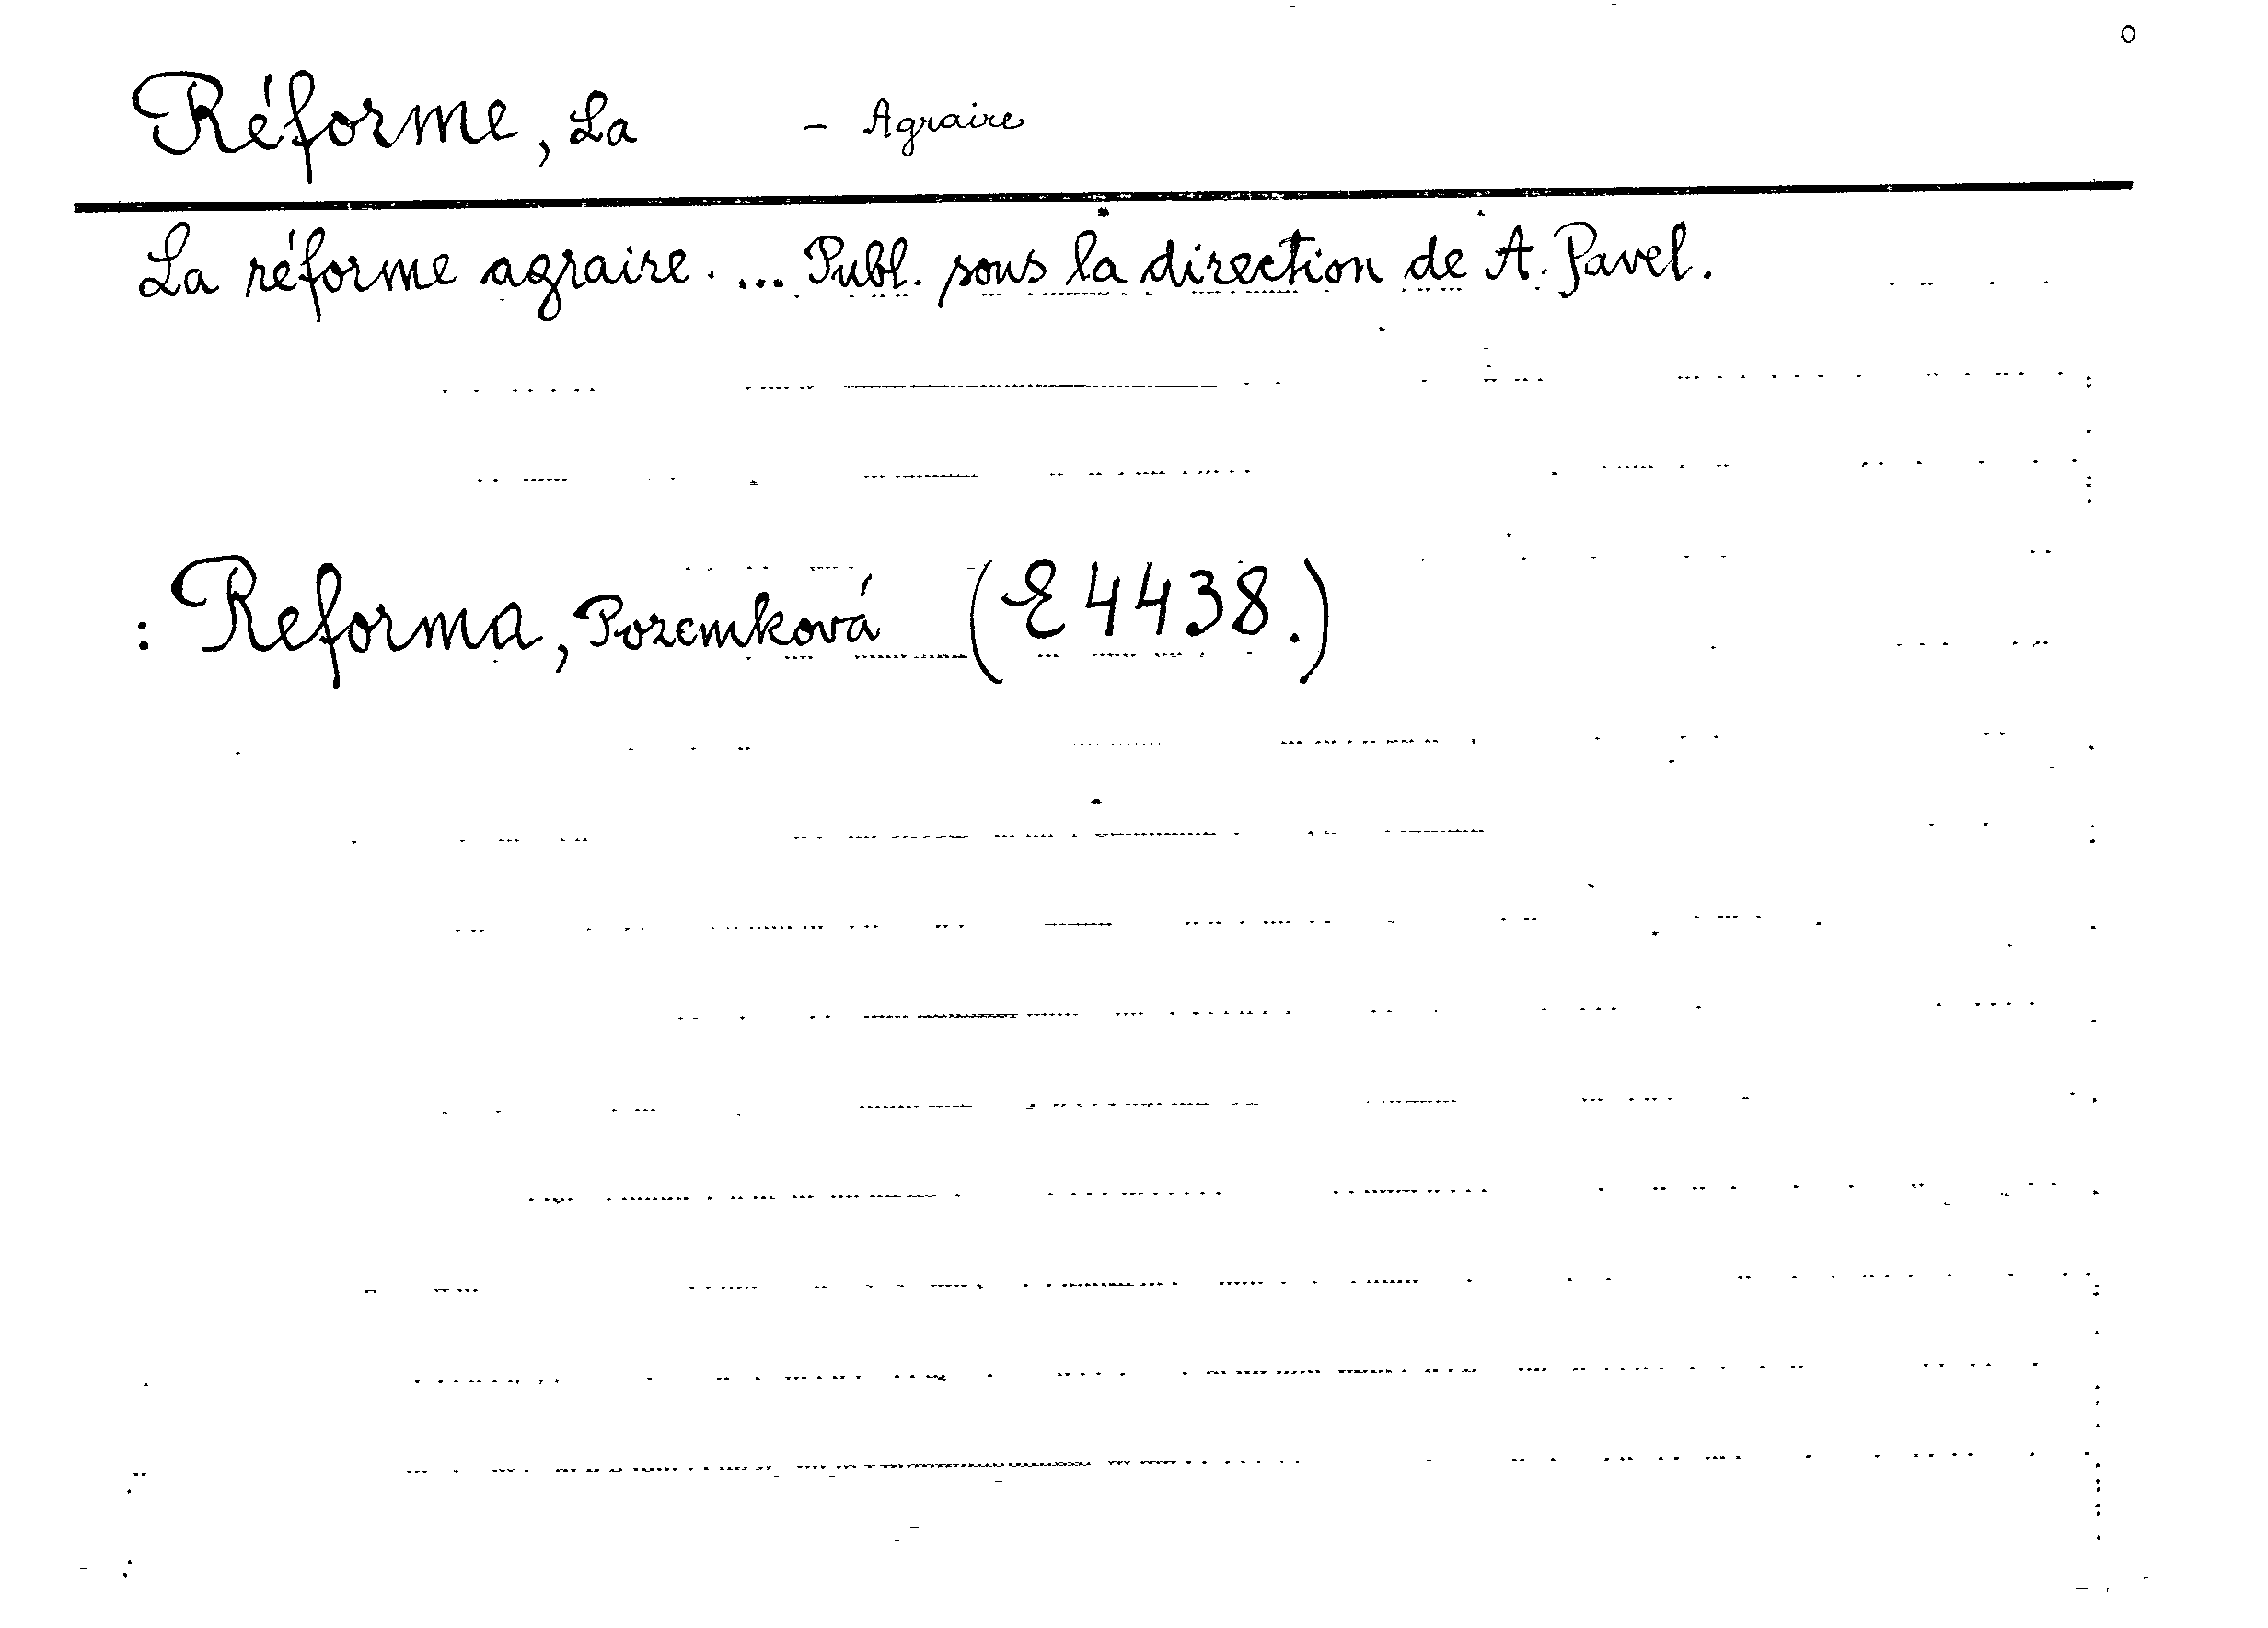 Réforme, La – Agraire
La réforme agraire. ... Publ. sous la direction de A. Pavel.
: Reforma, Pozemková (E 4438.)